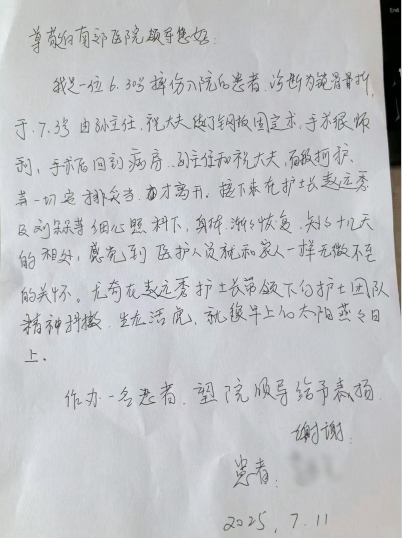 尊敬的南部医院领导您好：
我是一位6.30号摔伤入院的患者，诊断为锁骨骨折，
于.7.3号由孙主任.祝大夫做了钢板固定术，手术很顺
利，手术后回到病房.孙主任和祝大夫.
等一切安排妥当.才离开。接下来在护士长赵立秀
及刘等细心照料下，身体渐渐恢复，短短十几天
的相处，感觉到医护人员就和家人一样无微不至
的关怀。尤奇在赵立秀护士长带领下的护士团队
精神抖擞.生龙活虎，就像早上的太阳蒸蒸日
上.
作为一名患者.望院领导给予表扬.
谢谢.
患者:
2025.7.11